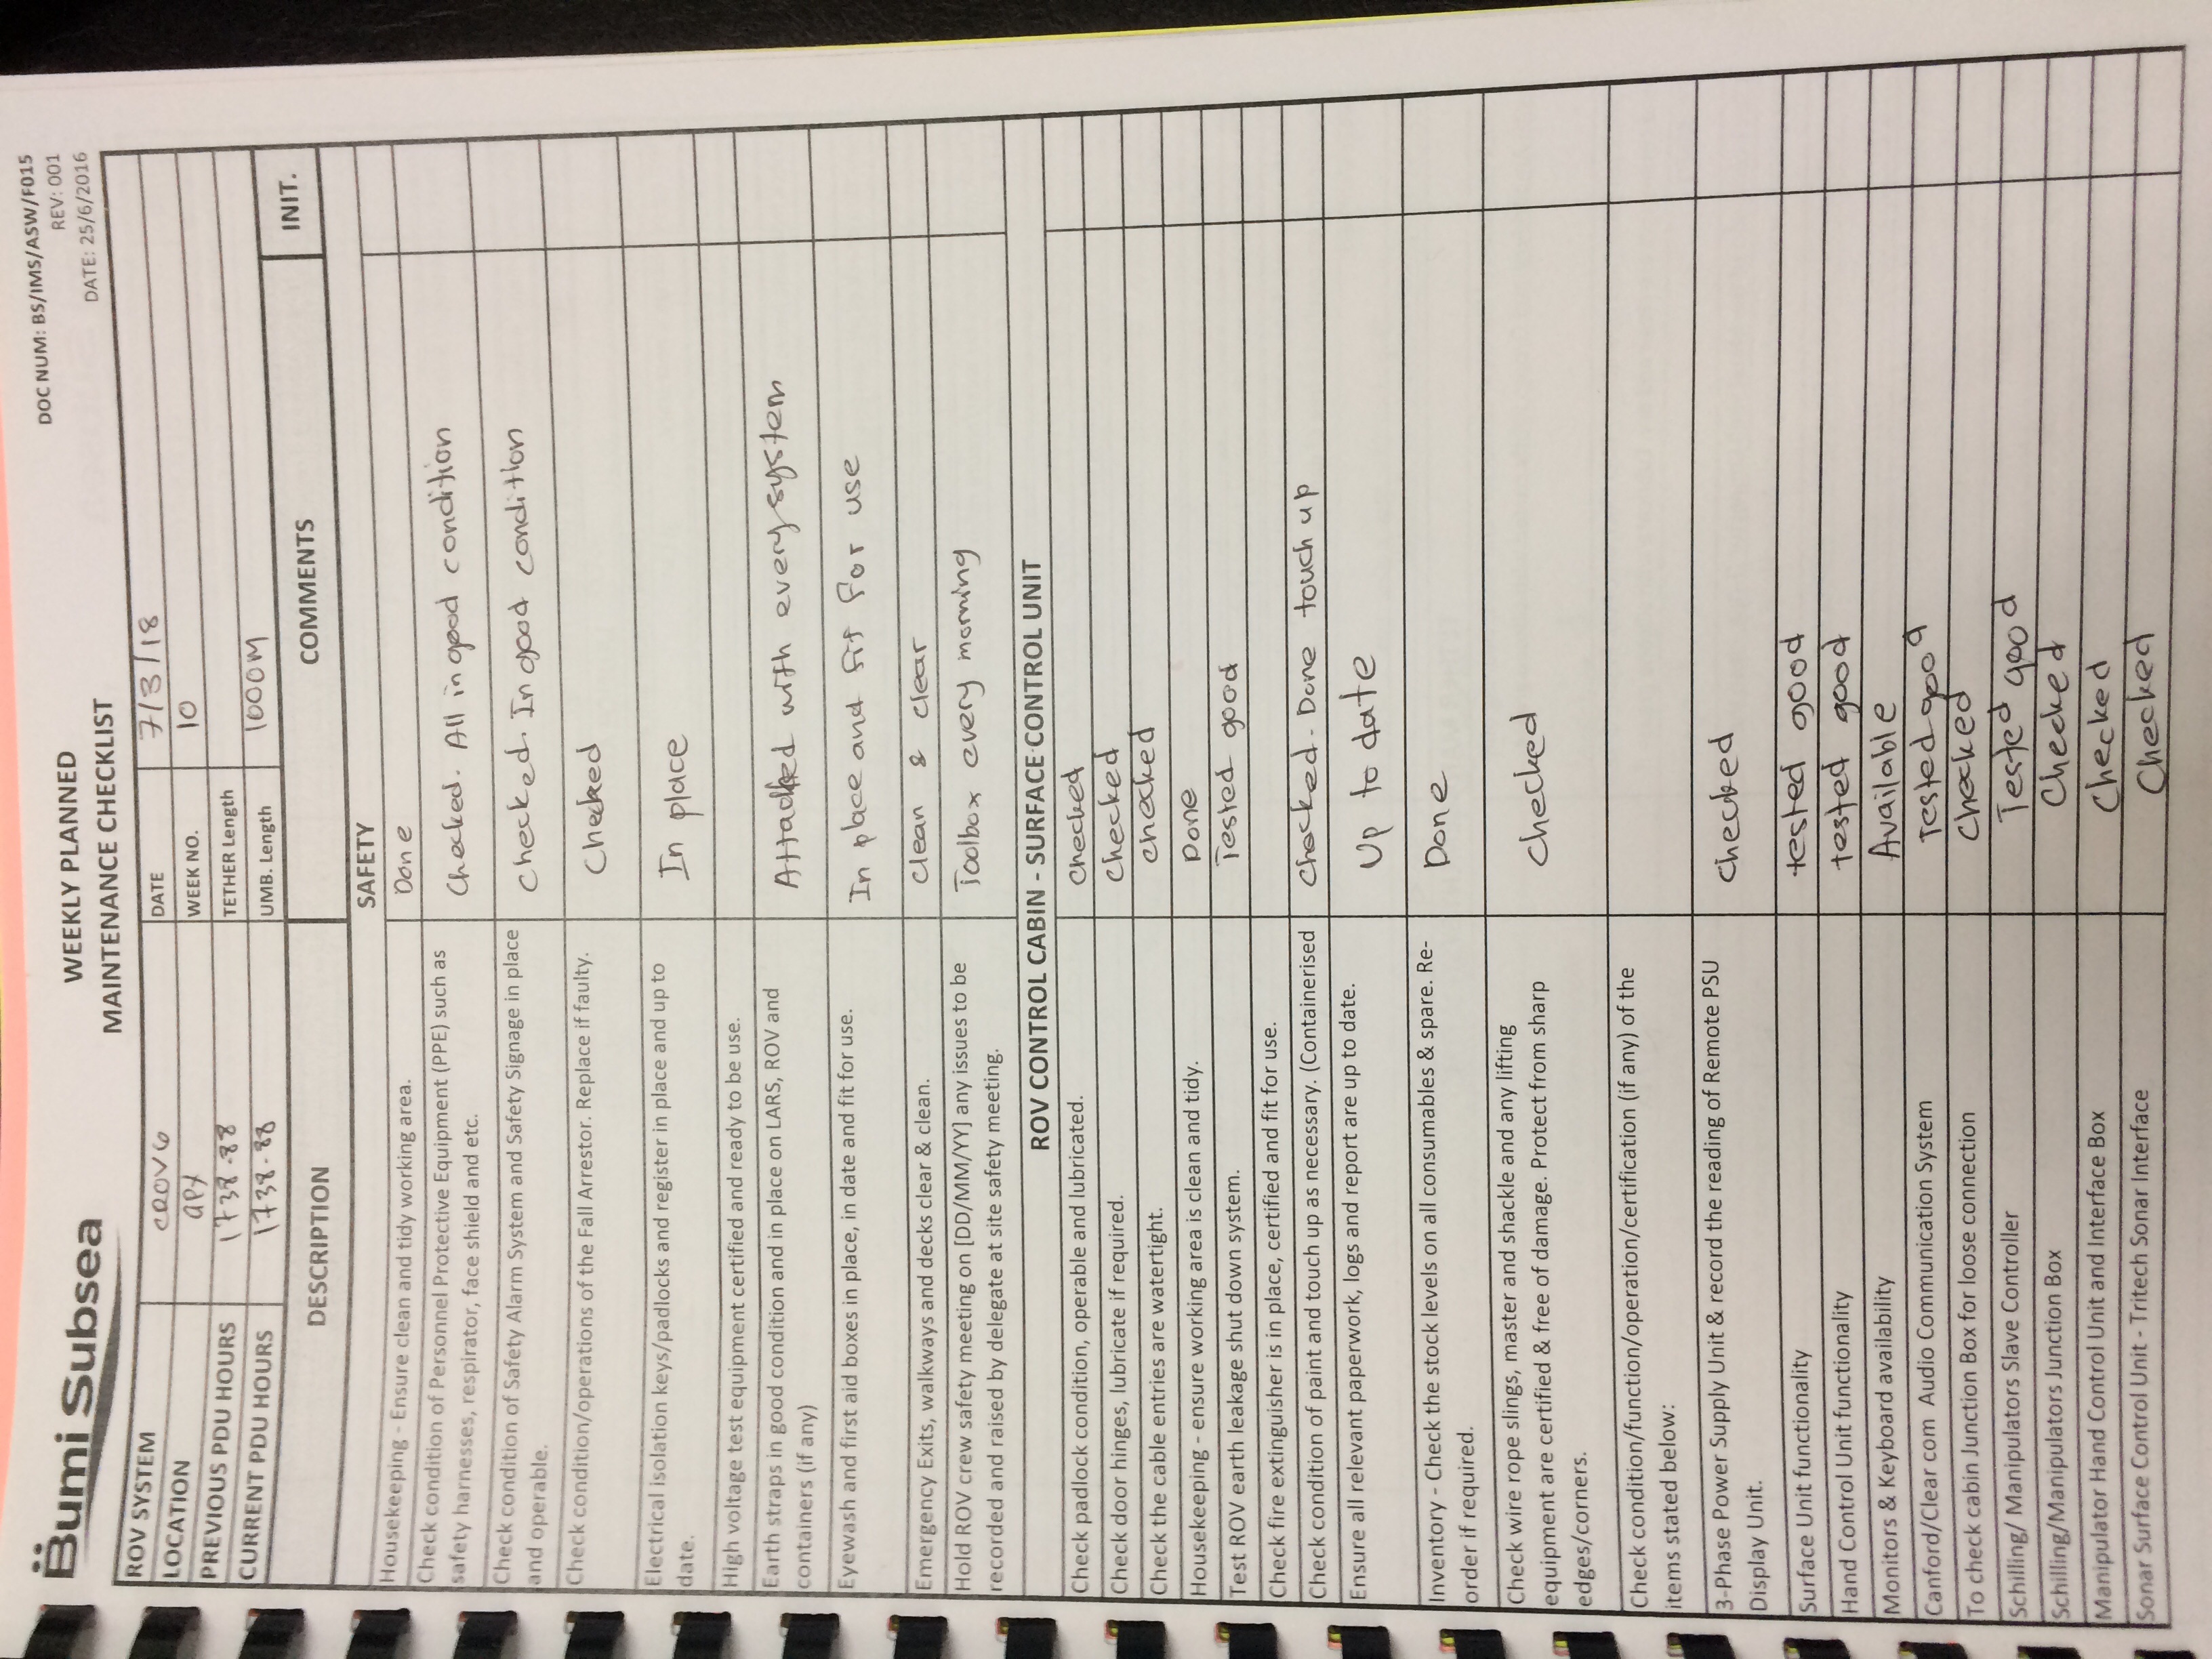 Bumi Subsea
WEEKLY PLANNED
MAINTENANCE CHECKLIST
DOC NUM: BS/IMS/ASW/F015
REV: 001
DATE: 25/6/2016
ROV SYSTEM CROV6 DATE 7/3/18
LOCATION WEEK NO. 10
PREVIOUS PDU HOURS 1738.88 TETHER Length
CURRENT PDU HOURS 1738.88 UMB. Length 1000M
DESCRIPTION COMMENTS INIT.
SAFETY
Housekeeping - Ensure clean and tidy working area. Done
Check condition of Personnel Protective Equipment (PPE) such as
safety harnesses, respirator, face shield and etc. Checked. All in good condition
Check condition of Safety Alarm System and Safety Signage in place
and operable. Checked. In good condition
Check condition/operations of the Fall Arrestor. Replace if faulty. Checked
Electrical isolation keys/padlocks and register in place and up to
date. In place
High voltage test equipment certified and ready to be use.
Earth straps in good condition and in place on LARS, ROV and
containers (if any) Attached with every system
Eyewash and first aid boxes in place, in date and fit for use. In place and fit for use
Emergency Exits, walkways and decks clear & clean. Clean & clear
Hold ROV crew safety meeting on [DD/MM/YY] any issues to be
recorded and raised by delegate at site safety meeting. Toolbox every morning
ROV CONTROL CABIN - SURFACE CONTROL UNIT
Check padlock condition, operable and lubricated. Checked
Check door hinges, lubricate if required. Checked
Check the cable entries are watertight. Checked
Housekeeping - ensure working area is clean and tidy. Done
Test ROV earth leakage shut down system. Tested good
Check fire extinguisher is in place, certified and fit for use.
Check condition of paint and touch up as necessary. (Containerised Checked. Done touch up
Ensure all relevant paperwork, logs and report are up to date. Up to date
Inventory - Check the stock levels on all consumables & spare. Re-
order if required. Done
Check wire rope slings, master and shackle and any lifting
equipment are certified & free of damage. Protect from sharp
edges/corners. Checked
Check condition/function/operation/certification (if any) of the
items stated below:
3-Phase Power Supply Unit & record the reading of Remote PSU
Display Unit. Checked
Surface Unit functionality tested good
Hand Control Unit functionality tested good
Monitors & Keyboard availability Available
Canford/Clear com Audio Communication System Tested good
To check cabin Junction Box for loose connection Checked
Schilling/ Manipulators Slave Controller Tested good
Schilling/Manipulators Junction Box Checked
Manipulator Hand Control Unit and Interface Box Checked
Sonar Surface Control Unit - Tritech Sonar Interface Checked